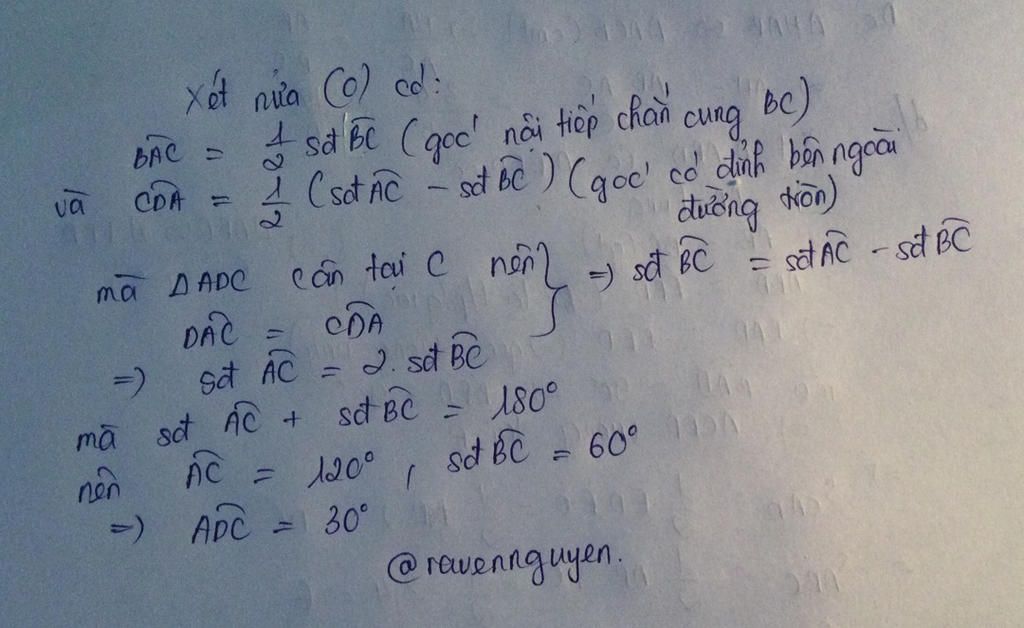 Xét nửa (O) có:
BAC = 1/2 sđ BC (góc nội tiếp chắn cung BC)
và CDA = 1/2 (sđ AC - sđ BC) (góc có đỉnh bên ngoài
đường tròn)
mà ΔADC cân tại C nên } => sđ BC = sđ AC - sđ BC
DAC = CDA
=> sđ AC = 2. sđ BC
mà sđ AC + sđ BC = 180°
nên AC = 120°, sđ BC = 60°
=> ADC = 30°
@ravennguyen.